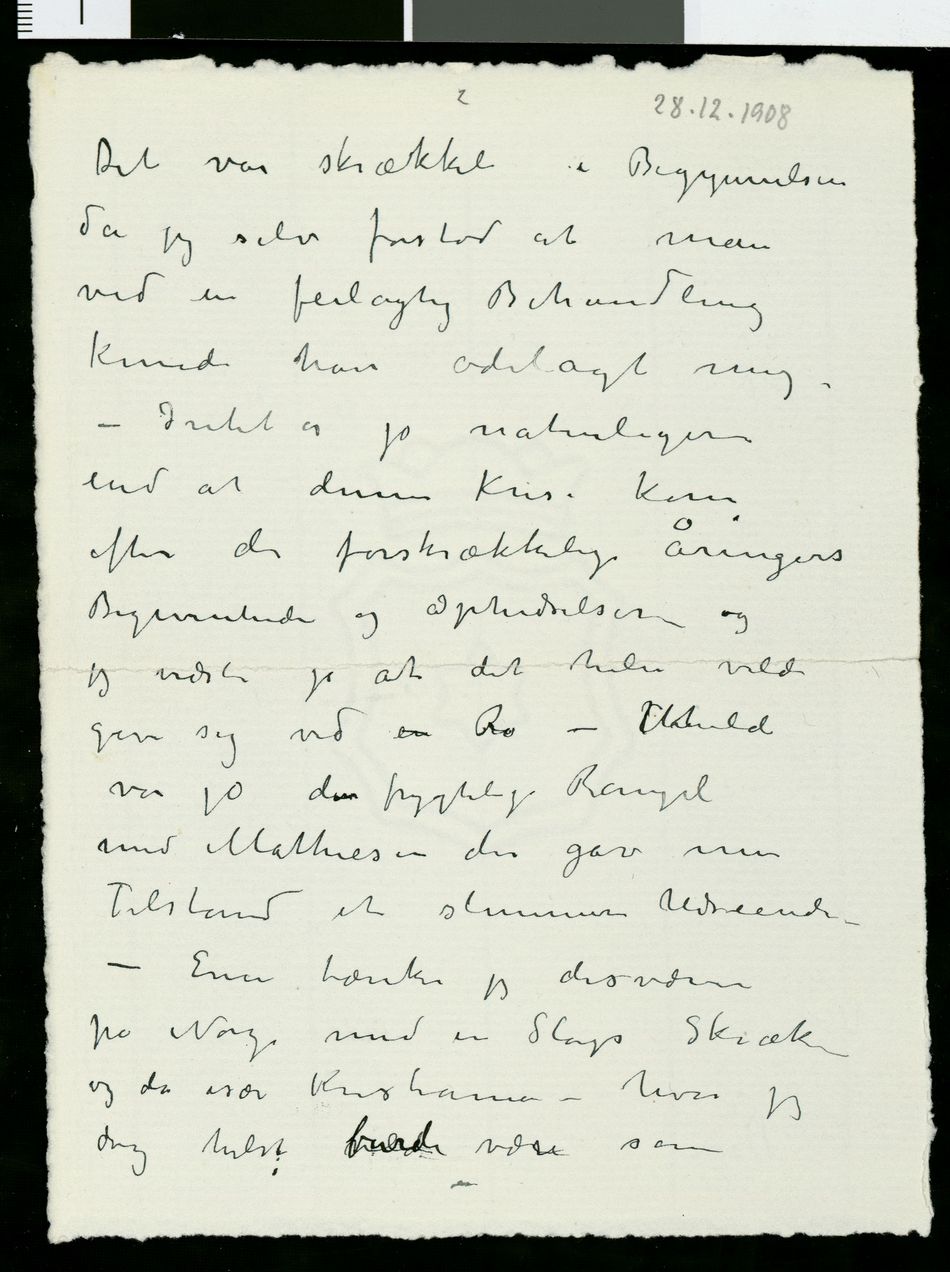 2
28.12.1908
Det var skrækkeli i Begynnelsen
da jeg selv forstod at man
ved en feilagtig Behandling
kunde have ødelagt mig.
– Intet er jo naturligere
end at denne Krise kom
efter de forskrækkelige Åringers
Begivenheder og Ophidselser og
jeg vidste jo at det hele vilde
give sig ved en Ro – Uheld
var jo den frygtelige Rangel
med Mathiesen der gav min
Tilstand et slemmere Udseende –
– Ennu tænker jeg desværre
på Norge med en Slags Skræk
og da især Kristiania – hvor jeg
dog helst burde være som